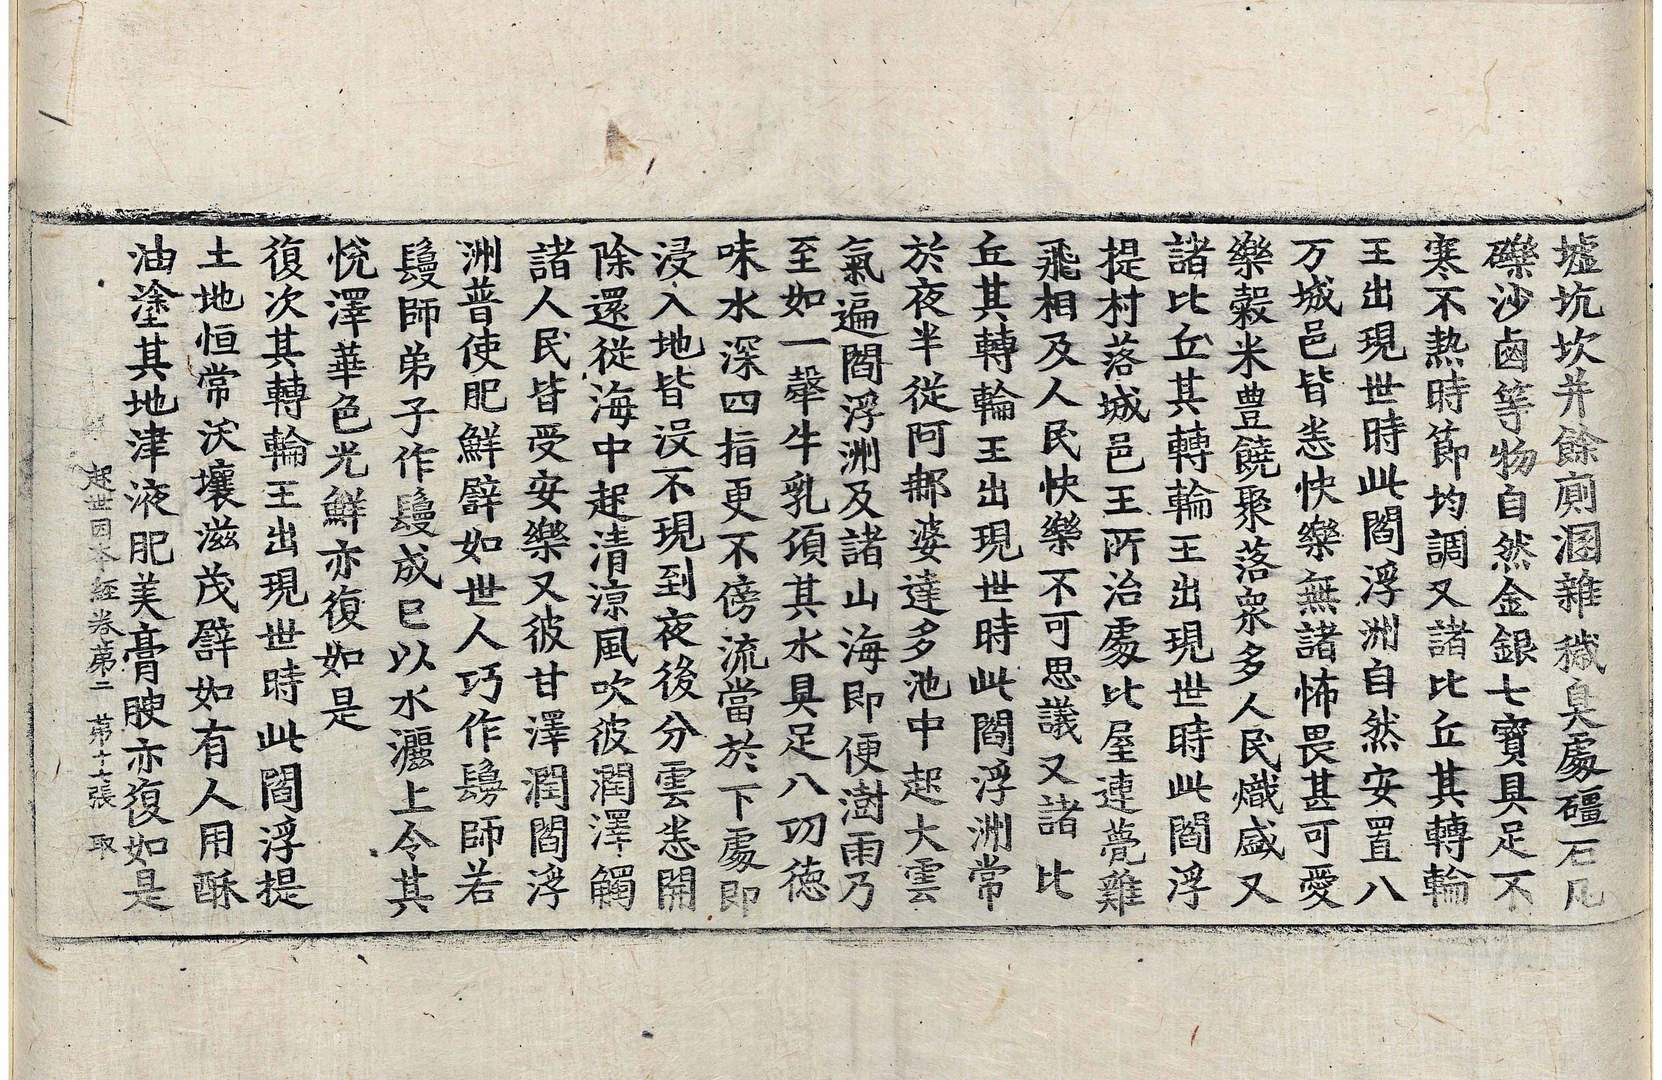 墟坑坎并餘廁溷雜穢臭處礓石瓦
礫沙鹵等物自然金銀七寶具足不
寒不熱時節均調又諸比丘其轉輪
王出現世時此閻浮洲自然安置八
万城邑皆悉快樂無諸怖畏甚可愛
樂穀米豊饒聚落衆多人民熾盛又
諸比丘其轉輪王出現世時此閻浮
提村落城邑王所治處比屋連甍雞
飛相及人民快樂不可思議又諸比
丘其轉輪王出現世時此閻浮洲常
於夜半從阿那婆達多池中起大雲
氣遍閻浮洲及諸山海即便澍雨乃
至如一㲉牛乳頃其水具足八功德
味水深四指更不傍流當於下處即
浸入地皆沒不現到夜後分雲悉開
除還從海中起清涼風吹彼潤澤觸
諸人民皆受安樂又彼甘澤潤閻浮
洲普使肥鮮譬如世人巧作鬘師若
鬘師弟子作鬘成已以水灑上令其
悅澤華色光鮮亦復如是
復次其轉輪王出現世時此閻浮提
土地恒常沃壤滋茂譬如有人用酥
油塗其地津液肥美膏腴亦復如是
起世因本經卷第二 第十六張 取